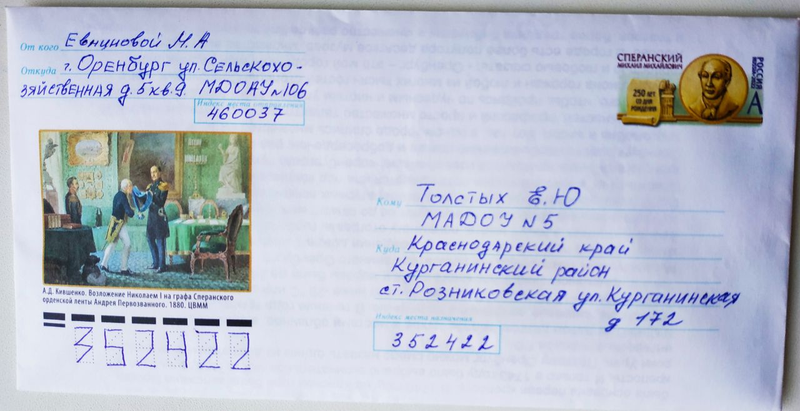 От кого Евнуновой М.А
Откуда г. Оренбург ул. Сельскохо-
зяйственная д. 5 кв. 9 МДОАУ №106
Индекс места отправления
460037
СПЕРАНСКИЙ
МИХАИЛ МИХАЙЛОВИЧ
250 ЛЕТ
СО ДНЯ
РОЖДЕНИЯ
РОССИЯ
А
А.Д. Кившенко. Возложение Николаем I на графа Сперанского
орденской ленты Андрея Первозванного. 1880. ЦВММ
352422
Кому Толстых Е.Ю
МАДОУ №5
Куда Краснодарский край
Курганинский район
ст. Розниковская ул. Курганинская
д 172
Индекс места назначения
352422